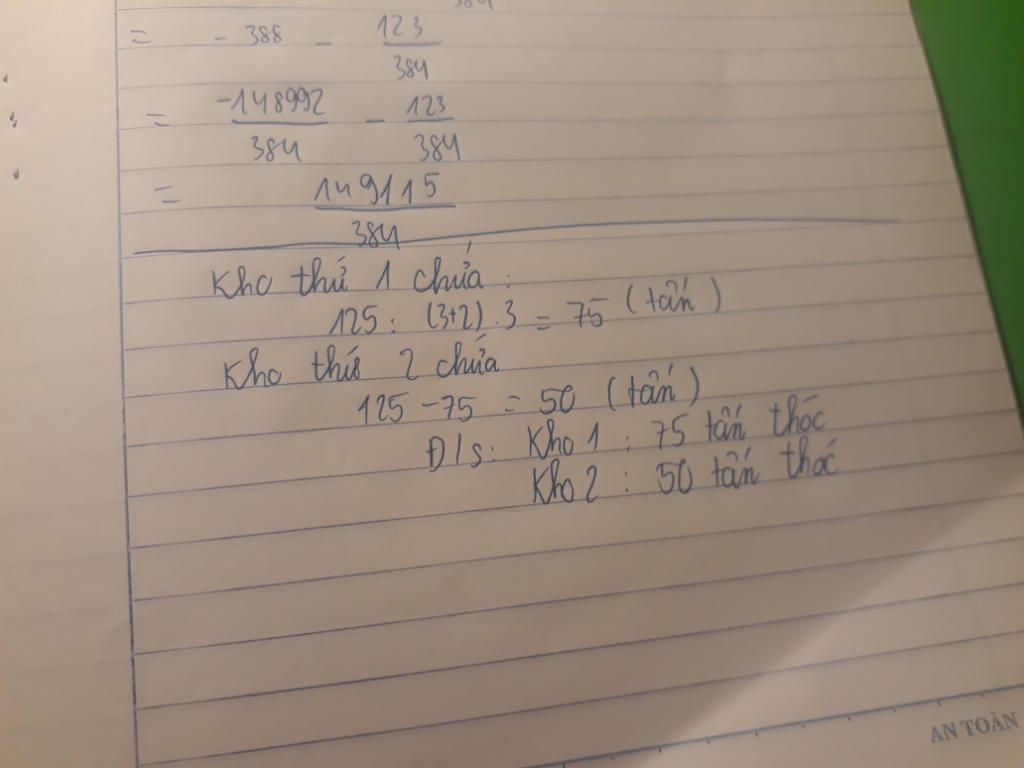 384
= - 388 - 123/384
= -148992/384 - 123/384
= 149115/384
Kho thứ 1 chứa :
125 : (3+2) . 3 = 75 (tấn)
Kho thứ 2 chứa
125 - 75 = 50 (tấn)
Đ/s : Kho 1 : 75 tấn thóc
Kho 2 : 50 tấn thóc
AN TOÀN